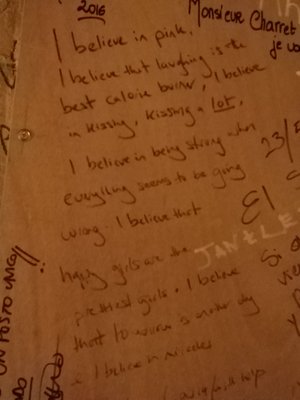 2016
Monsieur Charret
je vo
I believe in pink.
I believe that laughing is the
best calorie burner, I believe
in kissing, kissing a lot,
I believe in being strong when
everything seems to be going
wrong. I believe that
happy girls are the
prettiest girls. I believe
that is another day
I believe in miracles
23/
El
JANELE
Si
UN POSTO UNICO!!